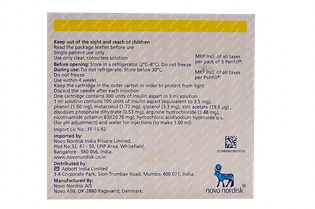 Keep out of the sight and reach of children
Read the package leaflet before use
Single patient use only
Use only clear, colourless solution
MRP incl. of all taxes
per pack of 5 Penfill®
Before opening: Store in a refrigerator (2°C-8°C). Do not freeze
During use: Do not refrigerate. Store below 30°C.
Do not freeze
MRP incl. of all taxes
per Penfill®
Use within 4 weeks
Keep the cartridge in the outer carton in order to protect from light
Discard the needle after each injection
One cartridge contains 300 units of insulin aspart in 3 ml solution
1 ml solution contains 100 units of insulin aspart (equivalent to 3.5 mg),
phenol (1.50 mg), metacresol (1.72 mg), glycerol (3.3 mg), zinc acetate (19.6 µg),
disodium phosphate dihydrate (0.53 mg), arginine hydrochloride (3.48 mg),
nicotinamide (vitamin B3)(20.76 mg), hydrochloric acid/sodium hydroxide q.s.
(for pH adjustment) and water for injection (to make 1.00 ml)
Import Lic No: FF-15-92
Imported by:
Novo Nordisk India Private Limited,
Plot No 32, 47 - 50, EPIP Area, Whitefield,
Bangalore - 560 066, India.
www.novonordisk.in
Distributed By:
Abbott India Limited
3-4 Corporate Park, Sion-Trombay Road, Mumbai. 400 071, India.
Manufactured By:
Novo Nordisk A/S
Novo Allé, DK-2880 Bagsværd, Denmark.
novo nordisk®